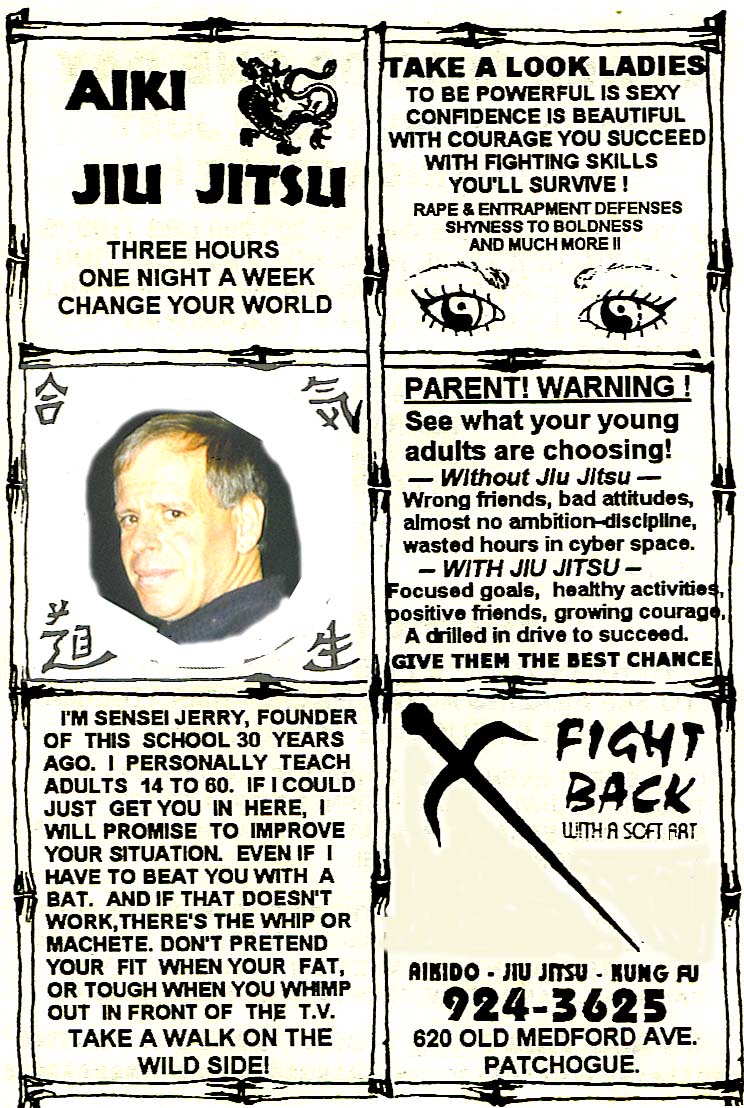 AIKI
JIU JITSU
THREE HOURS
ONE NIGHT A WEEK
CHANGE YOUR WORLD
TAKE A LOOK LADIES
TO BE POWERFUL IS SEXY
CONFIDENCE IS BEAUTIFUL
WITH COURAGE YOU SUCCEED
WITH FIGHTING SKILLS
YOU'LL SURVIVE !
RAPE & ENTRAPMENT DEFENSES
SHYNESS TO BOLDNESS
AND MUCH MORE !!
合 気
道 生
PARENT! WARNING !
See what your young
adults are choosing!
— Without Jiu Jitsu —
Wrong friends, bad attitudes,
almost no ambition–discipline,
wasted hours in cyber space.
– WITH JIU JITSU –
Focused goals, healthy activities,
positive friends, growing courage,
A drilled in drive to succeed.
GIVE THEM THE BEST CHANCE
I'M SENSEI JERRY, FOUNDER
OF THIS SCHOOL 30 YEARS
AGO. I PERSONALLY TEACH
ADULTS 14 TO 60. IF I COULD
JUST GET YOU IN HERE, I
WILL PROMISE TO IMPROVE
YOUR SITUATION. EVEN IF I
HAVE TO BEAT YOU WITH A
BAT. AND IF THAT DOESN'T
WORK,THERE'S THE WHIP OR
MACHETE. DON'T PRETEND
YOUR FIT WHEN YOUR FAT,
OR TOUGH WHEN YOU WHIMP
OUT IN FRONT OF THE T.V.
TAKE A WALK ON THE
WILD SIDE!
FIGHT
BACK
WITH A SOFT ART
AIKIDO - JIU JITSU - KUNG FU
924-3625
620 OLD MEDFORD AVE.
PATCHOGUE.